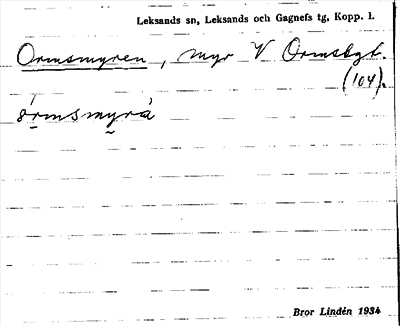 Leksands sn, Leksands och Gagnefs tg, Kopp. l.
Ormsmyren, myr V Ormsbgt.
(104).
Bror Lindén 1934